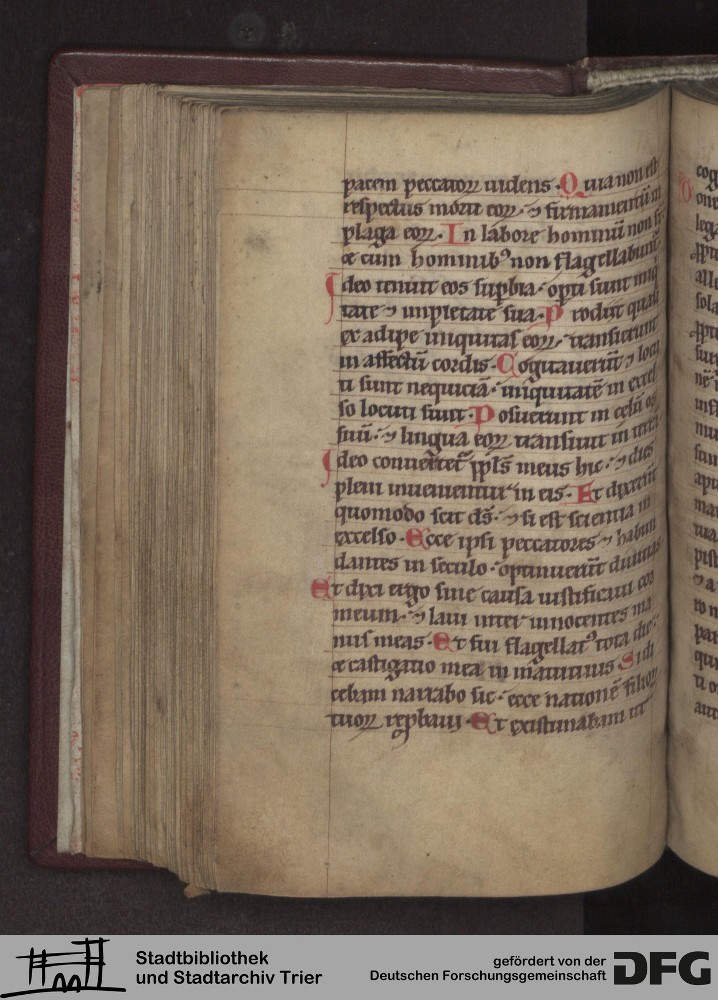 pacem peccatoꝝ uidens · Quia non est
respectus morti eoꝝ · ⁊ firmamentū in
plaga eoꝝ · In labore hominū non sṫ
⁊ cum hominibꝰ non flagellabunt᷑
Ideo tenuit eos supbia · opti sunt iniq
tate ⁊ impietate sua · Prodiit quasi
ex adipe iniquitas eoꝝ · transierunt
in affectū cordis · Cogitauerūt ⁊ locu
ti sunt nequiciā · iniquitatē in excel
so locuti sunt · Posuerunt in celū os
suū · ⁊ lingua eoꝝ transiuit in terra
Ideo conuertet᷑ ppl̄s meus hic · ⁊ dies
pleni inuenientur in eis · Et dixerūt
quomodo scit ds̄ · ⁊ si est scientia in
excelso · Ecce ipsi peccatores ⁊ habun
dantes in seculo · optinuerūt diuitias
Et dixi ergo sine causa iustificaui cor
meum · ⁊ laui inter innocentes ma
nus meas · Et fui flagellatꝰ tota die ·
⁊ castigatio mea in matutinis Si di
cebam narrabo sic · ecce nationē filioꝝ
tuoꝝ repbaui · Et existimabam ut
Stadtbibliothek
und Stadtarchiv Trier
gefördert von der
Deutschen Forschungsgemeinschaft
DFG